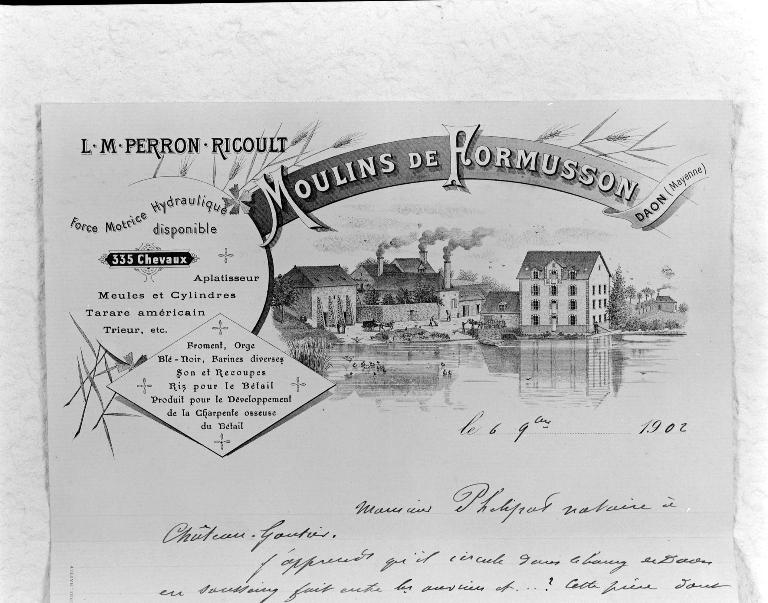 L·M·PERRON·RICOULT
MOULINS DE FORMUSSON
DAON (Mayenne)
Force Motrice Hydraulique
disponible
335 Chevaux
Aplatisseur
Meules et Cylindres
Tarare américain
Trieur, etc.
Froment, Orge
Blé-Noir, Farines diverses
Son et Recoupes
Riz pour le Bétail
Produit pour le Développement
de la Charpente osseuse
du Bétail
le 6 9bre 1902
Monsieur Philipot notaire à
Château-Gontier.
J'apprends qu'il circule dans le bourg de Daon
un soussing fait entre les ouvriers et ...? Cette pièce dont